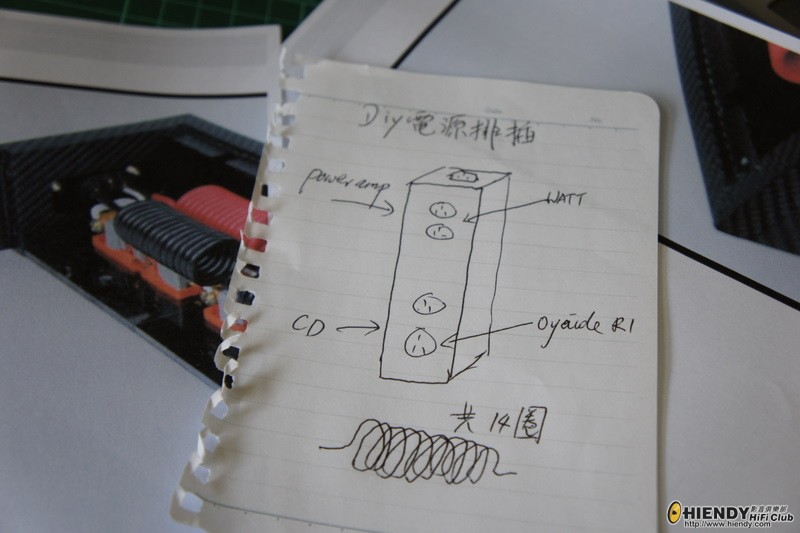 Diy電源排插
power amp
WATT
CD
Oyaide R1
共14圈
HIENDY影音俱樂部
HiFi Club
http://www.hiendy.com